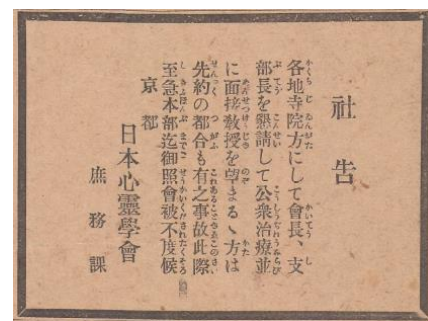 社告
各地寺院方にして會長、支
部長を懇請して公衆治療並
に面接教授を望まるゝ方は
先約の都合も有之事故此際
至急本部迄御照會被不度候
京都
日本心靈學會
庶務課